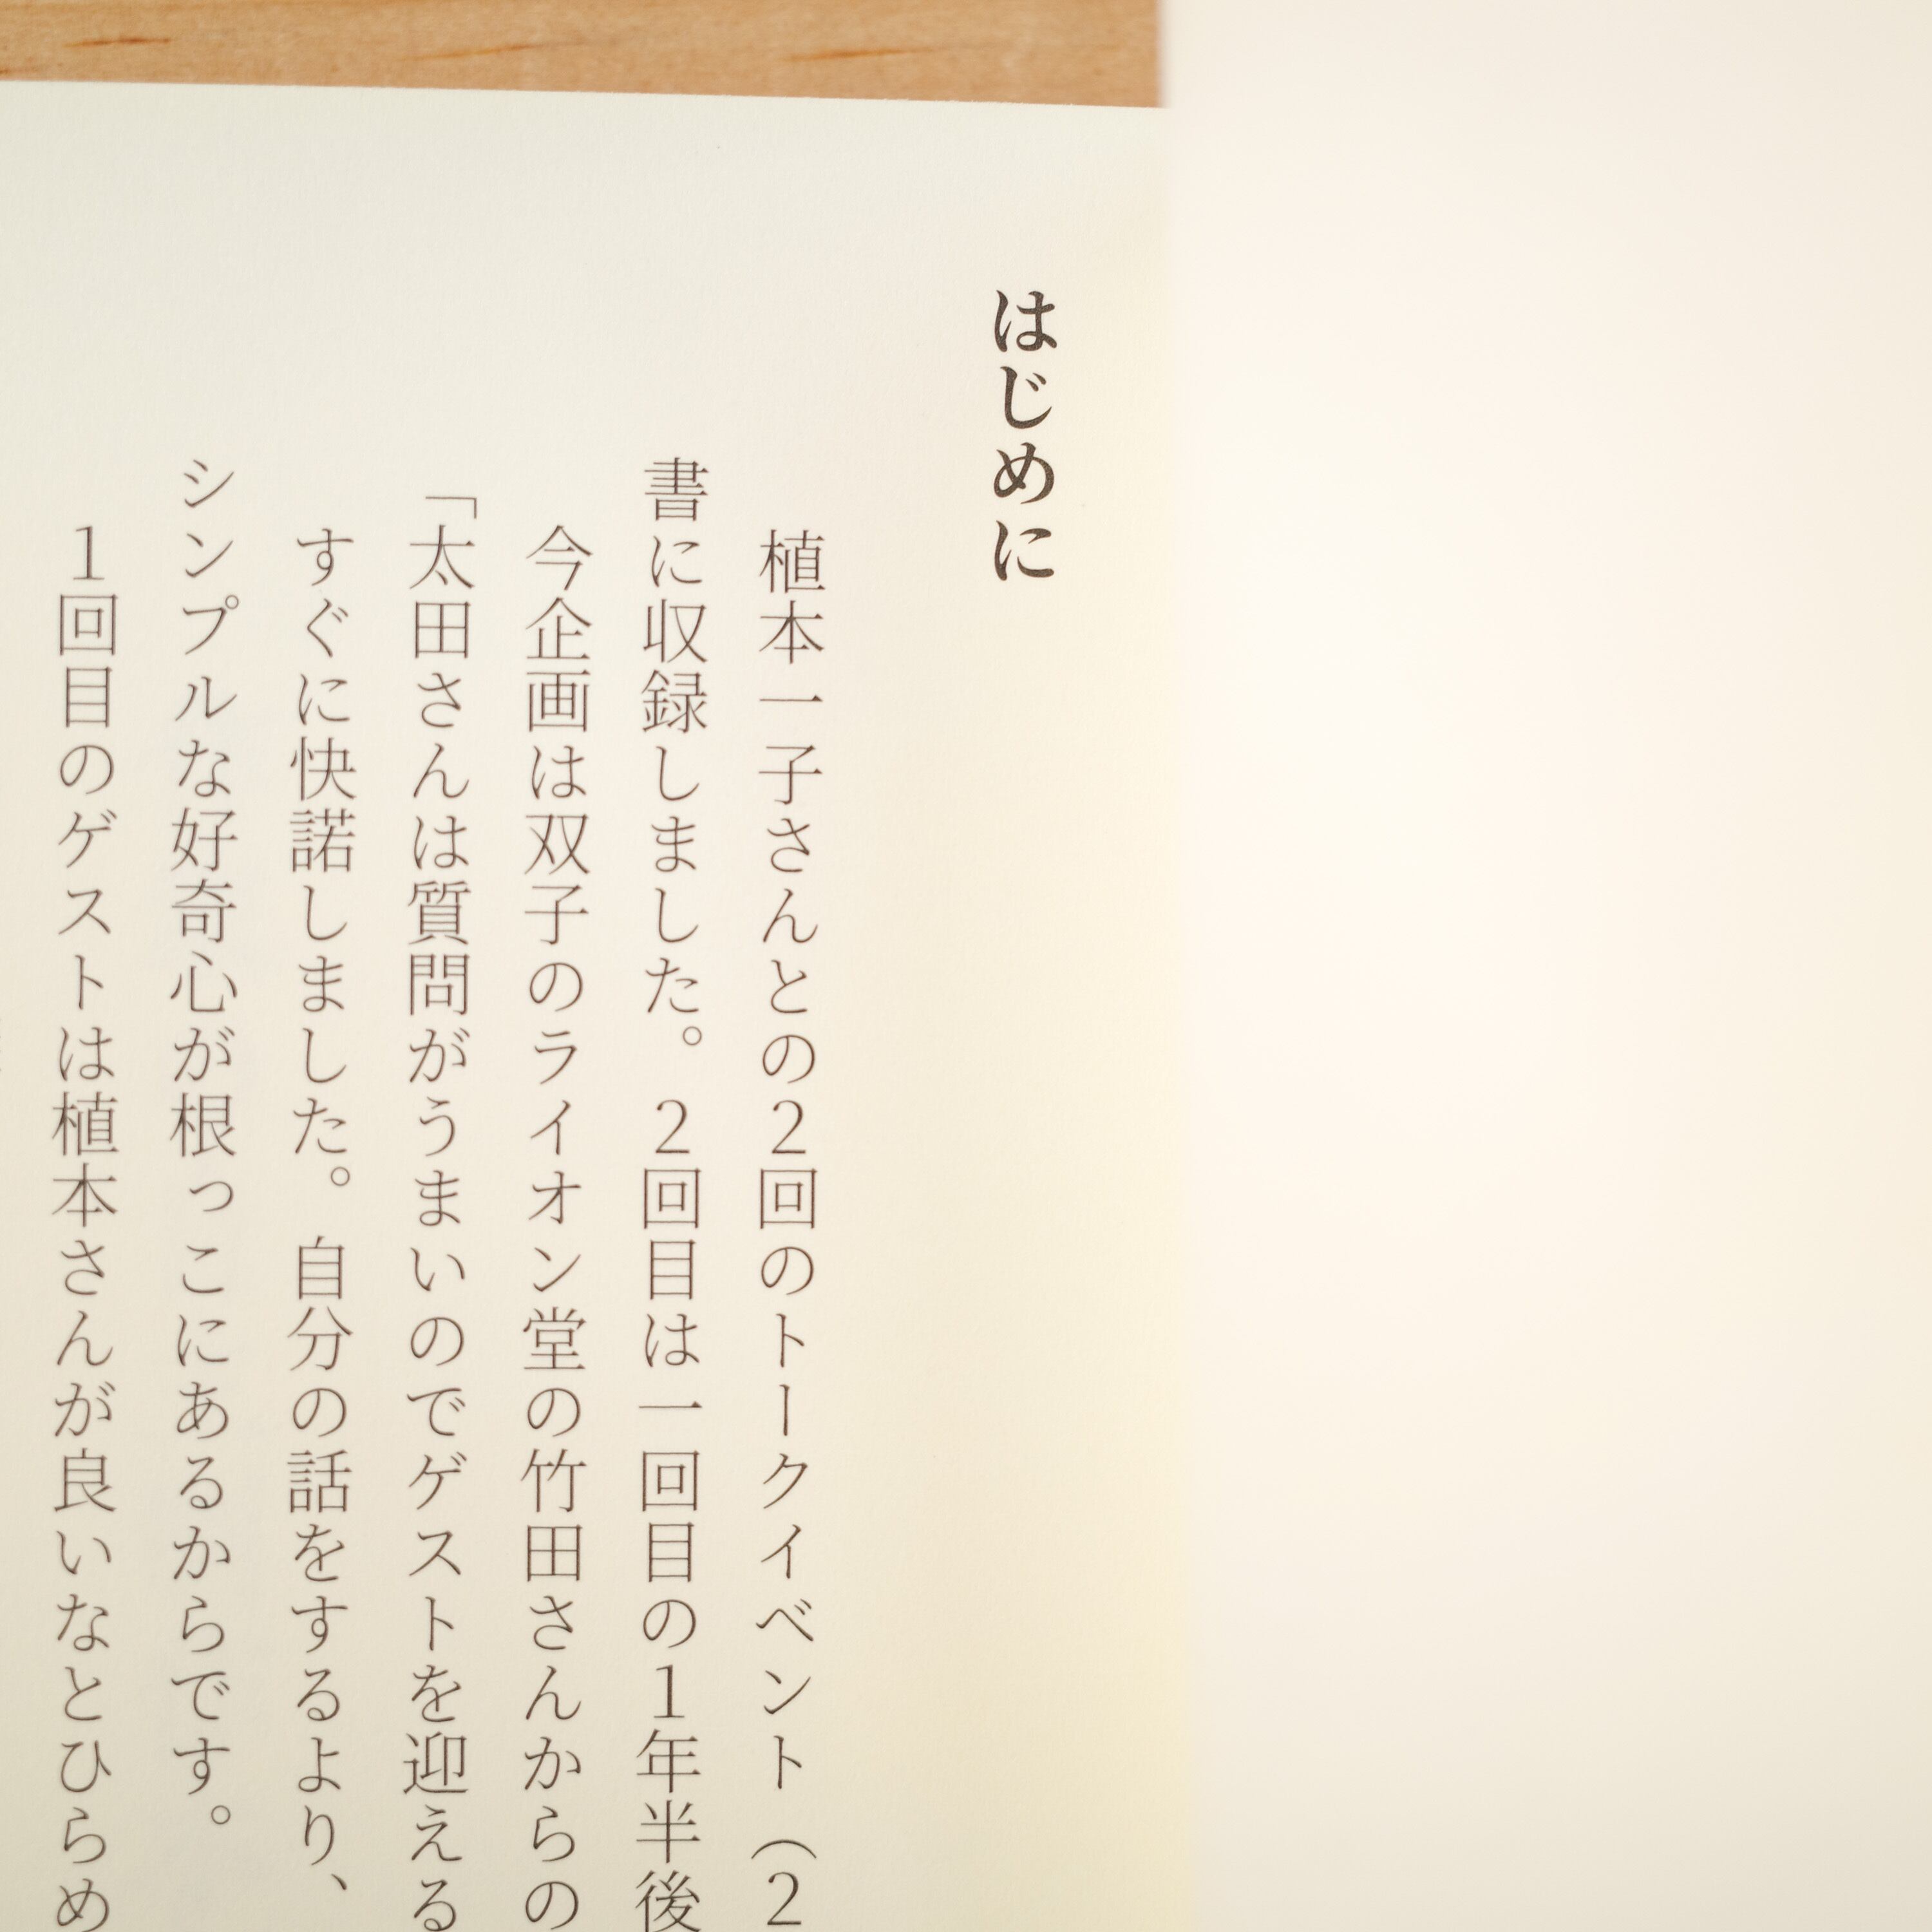 はじめに
植本一子さんとの2回のトークイベント（2
書に収録しました。2回目は一回目の1年半後
今企画は双子のライオン堂の竹田さんからの
「太田さんは質問がうまいのでゲストを迎える
すぐに快諾しました。自分の話をするより、
シンプルな好奇心が根っこにあるからです。
1回目のゲストは植本さんが良いなとひらめ